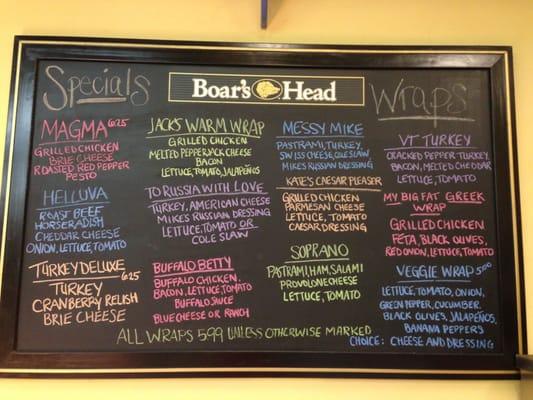 Specials
Boar's Head
Wraps
MAGMA 6.25
GRILLED CHICKEN
BRIE CHEESE
ROASTED RED PEPPER
PESTO
HELLUVA
ROAST BEEF
HORSERADISH
CHEDDAR CHEESE
ONION, LETTUCE, TOMATO
TURKEY DELUXE 6.25
TURKEY
CRANBERRY RELISH
BRIE CHEESE
JACKS WARM WRAP
GRILLED CHICKEN
MELTED PEPPERJACK CHEESE
BACON
LETTUCE, TOMATO, JALAPEÑOS
TO RUSSIA WITH LOVE
TURKEY, AMERICAN CHEESE
MIKES RUSSIAN DRESSING
LETTUCE, TOMATO OR
COLE SLAW
BUFFALO BETTY
BUFFALO CHICKEN,
BACON, LETTUCE, TOMATO
BUFFALO SAUCE
BLUE CHEESE OR RANCH
MESSY MIKE
PASTRAMI, TURKEY,
SWISS CHEESE, COLE SLAW
MIKES RUSSIAN DRESSING
KATE'S CAESAR PLEASER
GRILLED CHICKEN
PARMESAN CHEESE
LETTUCE, TOMATO
CAESAR DRESSING
SOPRANO
PASTRAMI, HAM, SALAMI
PROVOLONE CHEESE
LETTUCE, TOMATO
VT TURKEY
CRACKED PEPPER TURKEY,
BACON, MELTED CHEDDAR
LETTUCE, TOMATO
MY BIG FAT GREEK
WRAP
GRILLED CHICKEN
FETA, BLACK OLIVES,
RED ONION, LETTUCE, TOMATO
VEGGIE WRAP 5.00
LETTUCE, TOMATO, ONION,
GREEN PEPPER, CUCUMBER,
BLACK OLIVES, JALAPEÑOS,
BANANA PEPPERS
CHOICE: CHEESE AND DRESSING
ALL WRAPS 5.99 UNLESS OTHERWISE MARKED